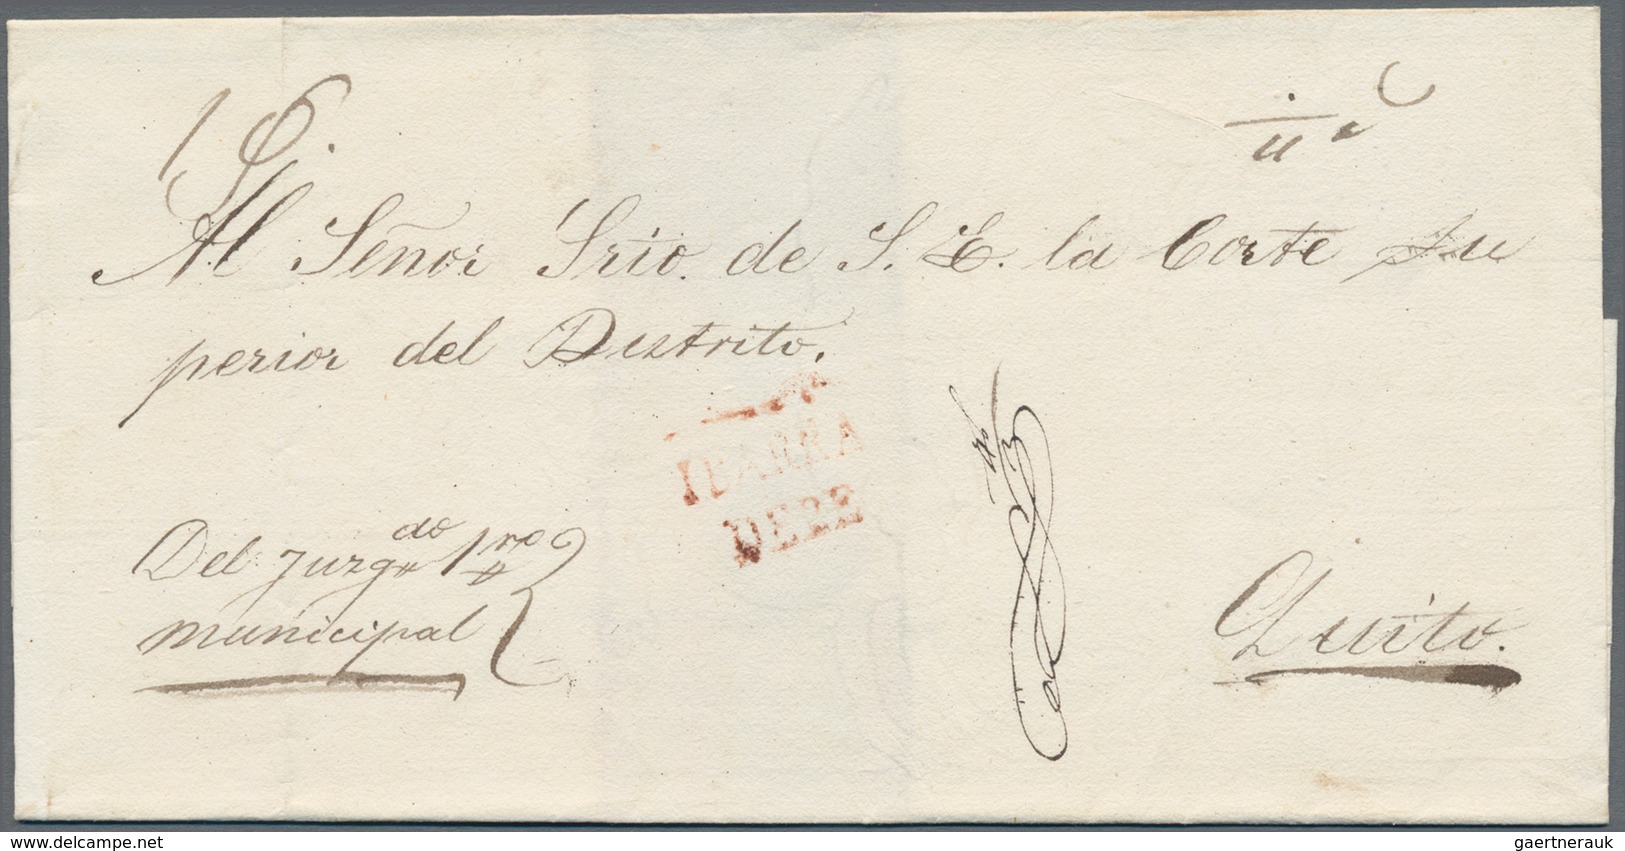 Al Señor Srio. de S. E. la Corte Su
perior del Distrito.
IBARRA
DEBE
Del Juzgdo 1ro
municipal
Quito.
delcampe.net
gaertnerauk